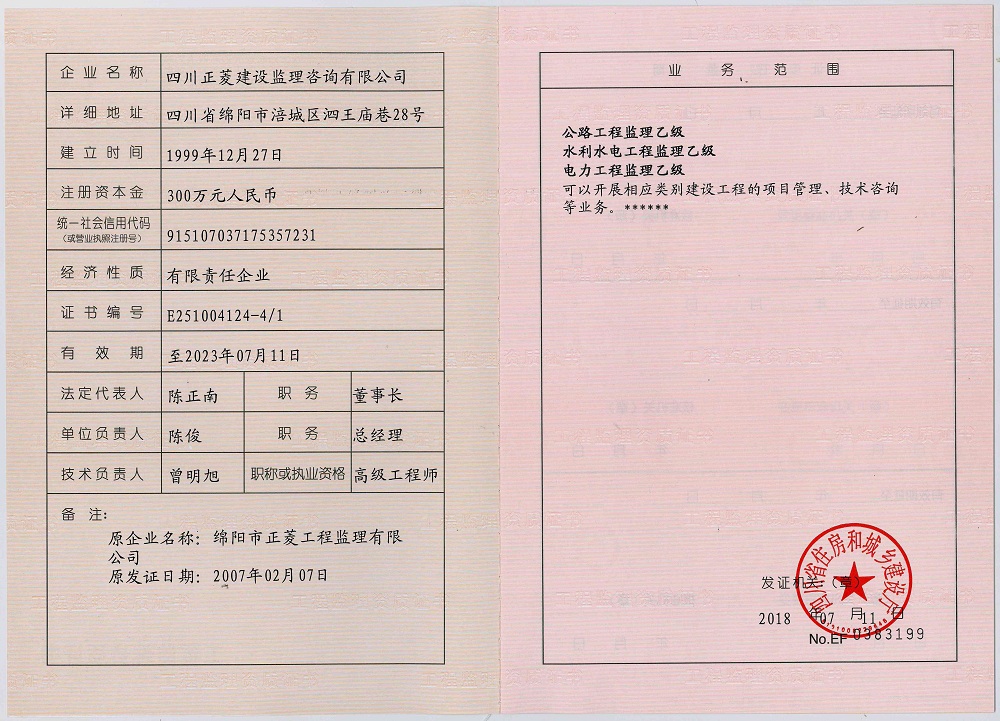 企业名称 四川正菱建设监理咨询有限公司
详细地址 四川省绵阳市涪城区泗王庙巷28号
建立时间 1999年12月27日
注册资本金 300万元人民币
统一社会信用代码 915107037175357231
(或营业执照注册号)
经济性质 有限责任企业
证书编号 E251004124-4/1
有效期 至2023年07月11日
法定代表人 陈正南 职务 董事长
单位负责人 陈俊 职务 总经理
技术负责人 曾明旭 职称或执业资格 高级工程师
备注:
原企业名称: 绵阳市正菱工程监理有限
公司
原发证日期: 2007年02月07日
业务范围
公路工程监理乙级
水利水电工程监理乙级
电力工程监理乙级
可以开展相应类别建设工程的项目管理、技术咨询
等业务。******
四川省住房和城乡建设厅
发证机关:(章)
2018年07月11日
No.EF 0383199